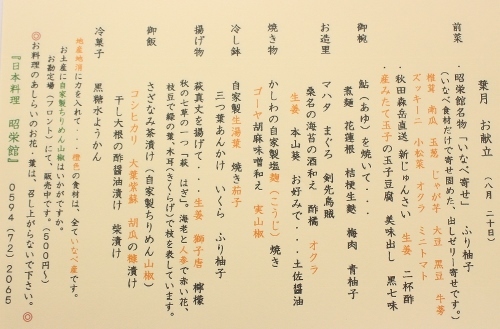 葉月 お献立 (八月 二十日)
前菜
・昭栄館名物「いなべ寄せ」 ふり柚子
(いなべ食材だけで寄せ固めた、出しゼリー寄せです。)
椎茸 南瓜 玉葱 じゃが芋 大豆 黒豆 牛蒡
ズッキーニ 小松菜 オクラ ミニトマト
・秋田森岳直送 新じゅんさい 生姜 二杯酢
・産みたて玉子の玉子豆腐 美味出し 黒七味
御椀
鮎(あゆ)を焼いて・・・・
煮麺 花蓮根 桔梗生麩 梅肉 青柚子
お造里
マハタ まぐろ 剣先烏賊
桑名の海苔の酒和え 酢橘 オクラ
生姜 本山葵 お好みで・・・土佐醤油
焼き物
かしわの自家製塩麹(こうじ)焼き
ゴーヤ胡麻味噌和え 実山椒
冷し鉢
自家製生湯葉 焼き茄子
三つ葉あんかけ いくら ふり柚子
揚げ物
萩真丈を揚げて・・・・生姜 獅子唐 檸檬
秋の七草の一つ「萩 はぎ」。海老と人参で赤い花、
枝豆で緑の葉、木耳(きくらげ)で枝を表しています。
御飯
さざなみ茶漬け(自家製ちりめん山椒)
コシヒカリ 大葉紫蘇 胡瓜の糠漬け
干し大根の酢醤油漬け 柴漬け
冷菓子
黒糖水ようかん
地産地消に力を入れて・・・橙色の食材は、全ていなべ産です。
お土産に自家製ちりめん山椒はいかがですか。
お勘定場(フロント)にて、販売中です。(500円~)
◎お料理のあしらいのお花・葉は、召し上がらないで下さい。◎
『日本料理 昭栄館』 0594(72)2065